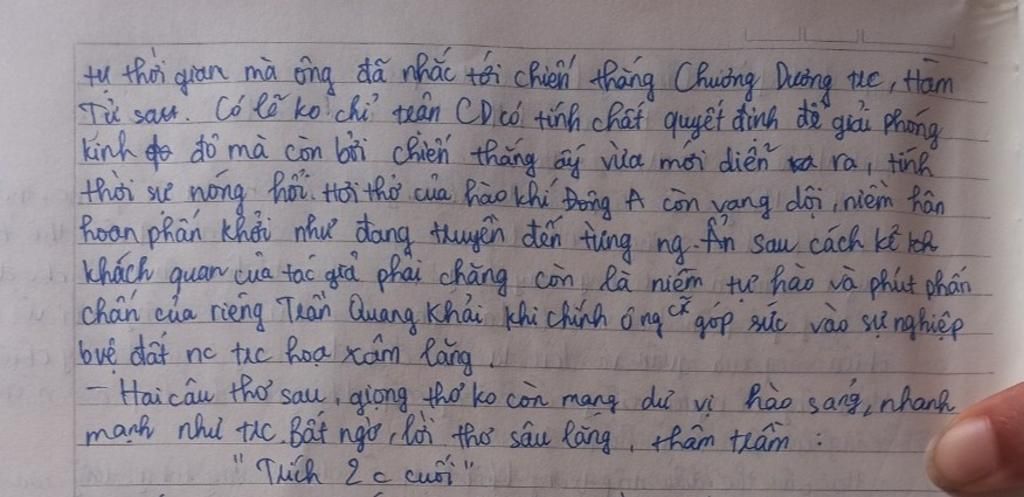 tự thời gian mà ông đã nhắc tới chiến thắng Chương Dương trc, Hàm
Tử sau. Có lẽ ko chỉ trận CD có tính chất quyết định để giải phóng
kinh đô mà còn bởi chiến thắng ấy vừa mới diễn ra, tính
thời sự nóng hổi. Hơi thở của hào khí Đông A còn vang dội, niềm hân
hoan phấn khởi như đang truyền đến từng ng. Ẩn sau cách kể
khách quan của tác giả phải chăng còn là niềm tự hào và phút phấn
chấn của riêng Trần Quang Khải khi chính ông cx góp sức vào sự nghiệp
bvệ đất nc trc hoạ xâm lăng.
- Hai câu thơ sau, giọng thơ ko còn mang dư vị hào sảng, nhanh
mạnh như trc. Bất ngờ, lời thơ sâu lắng, thâm trầm :
"Trích 2 c cuối"